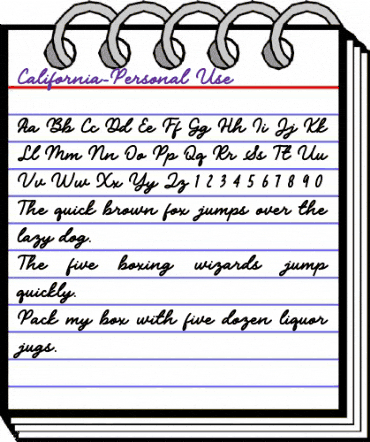 California-Personal Use
Aa Bb Cc Dd Ee Ff Gg Hh Ii Jj Kk
Ll Mm Nn Oo Pp Qq Rr Ss Tt Uu
Vv Ww Xx Yy Zz 1 2 3 4 5 6 7 8 9 0
The quick brown fox jumps over the
lazy dog.
The five boxing wizards jump
quickly.
Pack my box with five dozen liquor
jugs.